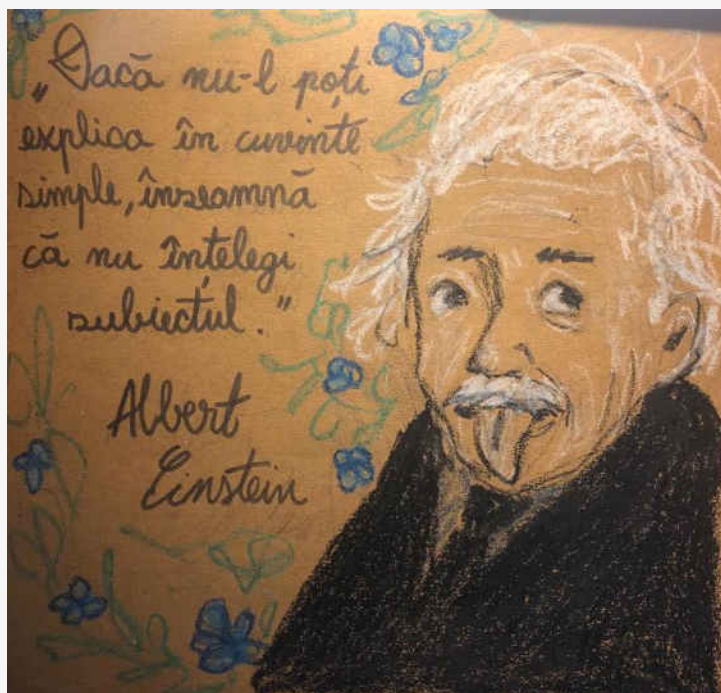 „Dacă nu-l poți
explica în cuvinte
simple, înseamnă
că nu înțelegi
subiectul.”
Albert
Einstein